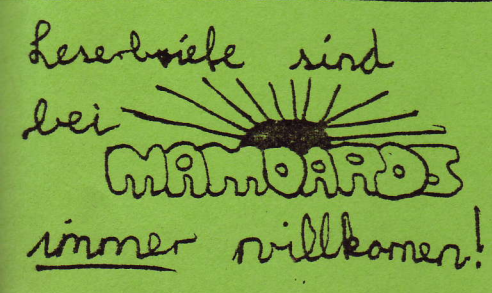 Leserbriefe sind
bei
MAMDARDS
immer willkomen!